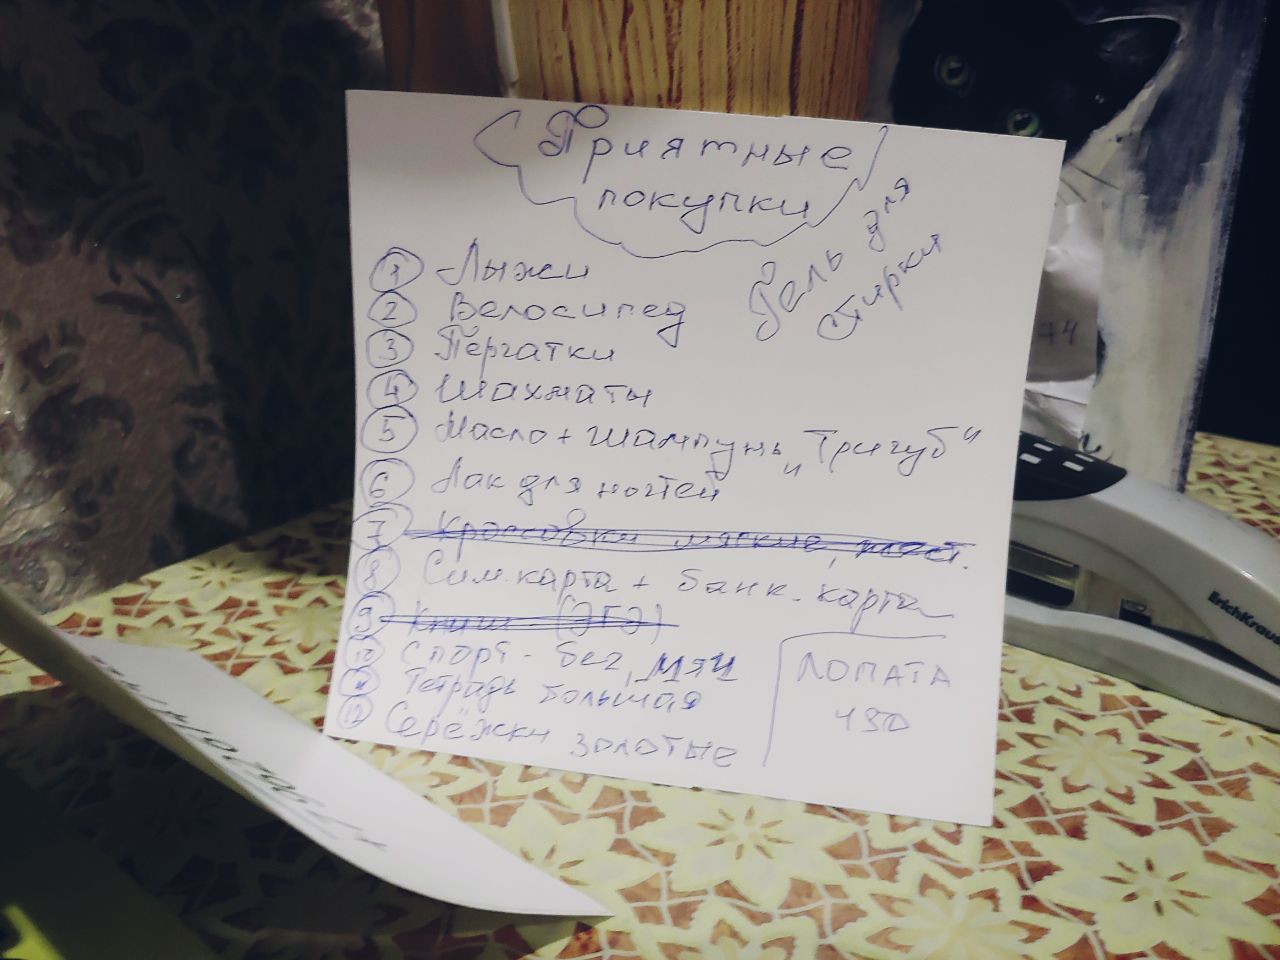 Приятные
покупки
Гель для
стирки
1 Лыжи
2 Велосипед
3 Пергатки
4 Шахматы
5 Масло + шампунь „Тригуб“
6 Лак для ногтей
7 Кроссовки мягкие,
8 Сим.карта + банк.карта
9 Книги (ЭГЭ)
10 Спорт - бег, мяч
11 Тетрадь большая
12 Серёжки золотые
ЛОПАТА
490
74
ErichKrause